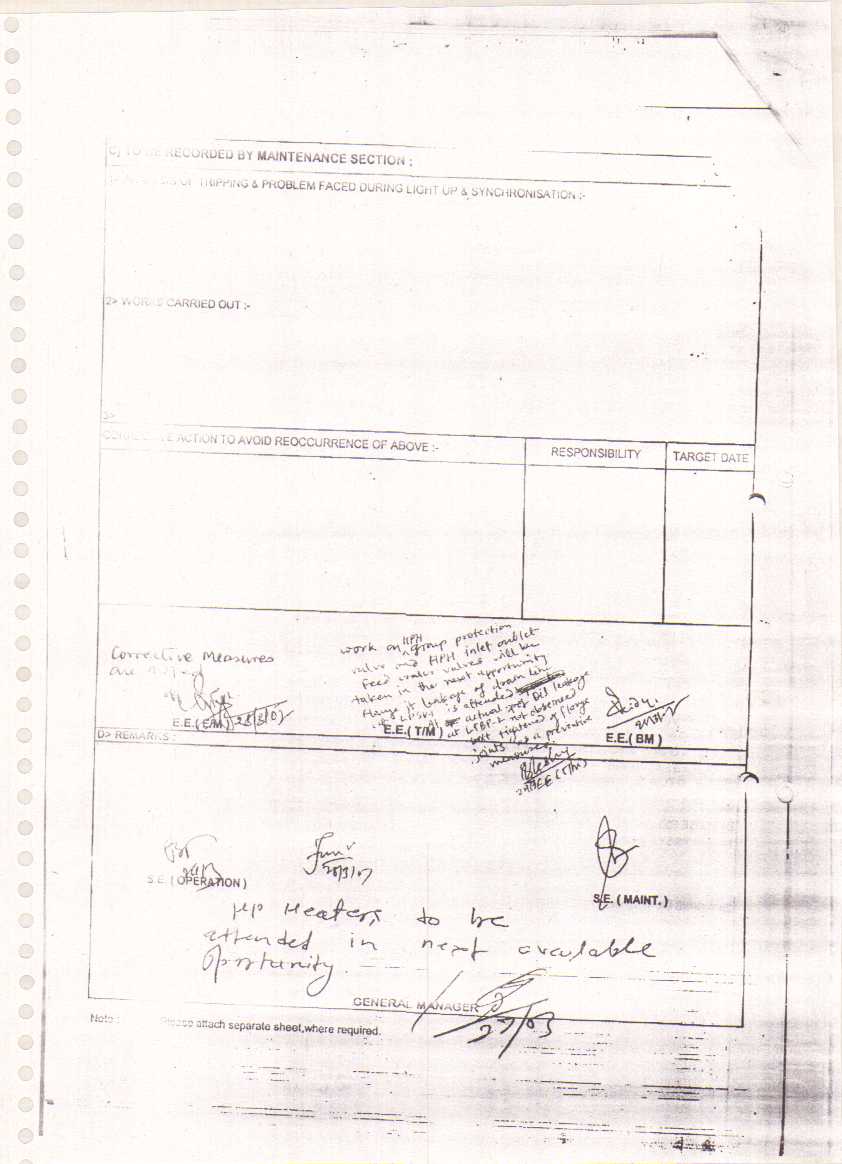 C) TO BE RECORDED BY MAINTENANCE SECTION :
OF TRIPPING & PROBLEM FACED DURING LIGHT UP & SYNCHRONISATION :-
2> WORKS CARRIED OUT :-
3>
ACTION TO AVOID REOCCURRENCE OF ABOVE :-
RESPONSIBILITY
TARGET DATE
Corrective Measures
are
E.E. ( E/M ) 28/3/07
work on HPH group protection
valve and HPH inlet outlet
feed water valves will be
taken in the next opportunity
Flange jt leakage of drain line
is attended
actual spot Oil leakage
at not observed
tightened flange
joints as a preventive
measures
E.E.( T/M )
EE (T/M)
E.E.( BM )
D> REMARKS :
S.E. ( OPERATION )
28/3/07
S.E. ( MAINT. )
HP Heaters to be
attended in next available
Oportunity.
GENERAL MANAGER
27/03
Note : Please attach separate sheet,where required.